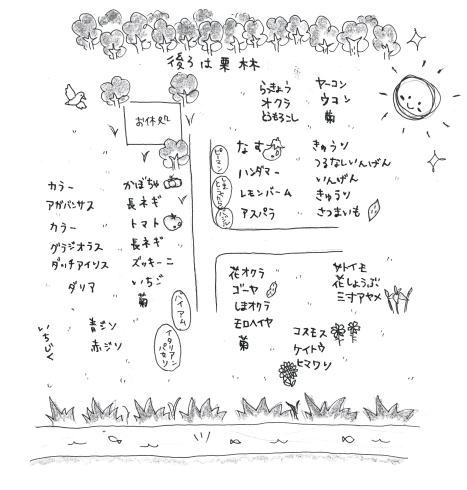 後ろは栗林
お休処
らっきょう
オクラ
とうもろこし
ヤーコン
ウコン
菊
ピーマン
なす
ハンダマー
レモンバーム
アスパラ
きゅうり
つるなしいんげん
いんげん
きゅうり
さつまいも
カラー
アガパンサス
カラー
グラジオラス
ダッチアイリス
ダリア
かぼちゃ
長ネギ
トマト
長ネギ
ズッキーニ
いちご
菊
バイアム
イタリアンパセリ
いちじく
青ジソ
赤ジソ
花オクラ
ゴーヤ
しまオクラ
モロヘイヤ
菊
サトイモ
花しょうぶ
三寸アヤメ
コスモス
ケイトウ
ヒマワリ